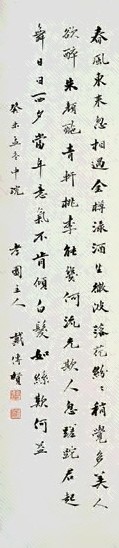 春風東來忽相過金樽淥酒生微波落花紛〻稍覺多美人
欲醉朱顏酡青軒桃李能幾何流光欺人忽蹉跎君起
舞日西夕當年意氣不肯傾白髮如絲歎何益
癸未孟冬中浣
孝園主人 戴傳賢